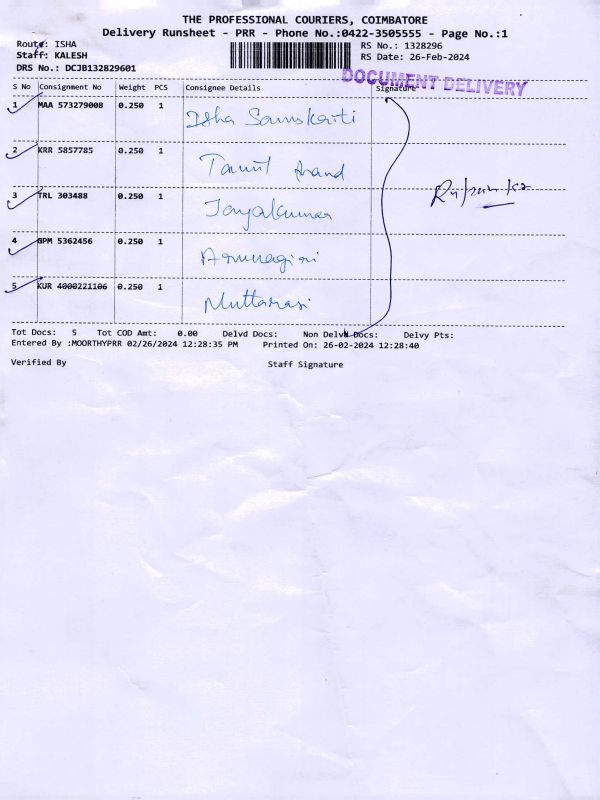 THE PROFESSIONAL COURIERS, COIMBATORE
Delivery Runsheet - PRR - Phone No.:0422-3505555 - Page No.:1
Route: ISHA
Staff: KALESH
DRS No.: DCJB132829601
RS No.: 1328296
RS Date: 26-Feb-2024
DOCUMENT DELIVERY
S No Consignment No Weight PCS Consignee Details Signature
1 MAA 573279008 0.250 1 Isha Samskriti
2 KRR 5857785 0.250 1 Tamil Anand
3 TRL 303488 0.250 1 Jayakumar
4 GPM 5362456 0.250 1 Arunagiri
5 KUR 4000221106 0.250 1 Muttarasi
Tot Docs: 5 Tot COD Amt: 0.00 Delvd Docs: Non Delvd Docs: Delvy Pts:
Entered By :MOORTHYPRR 02/26/2024 12:28:35 PM Printed On: 26-02-2024 12:28:40
Verified By Staff Signature